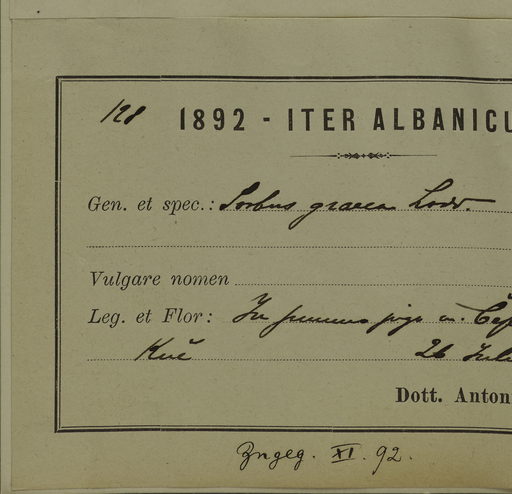 128
1892 - ITER ALBANICU
Gen. et spec.: Sorbus graeca Lodd.
Vulgare nomen
Leg. et Flor: In summo jugo m.
26 Juli
Dott. Anton
Zngeg. XI. 92.